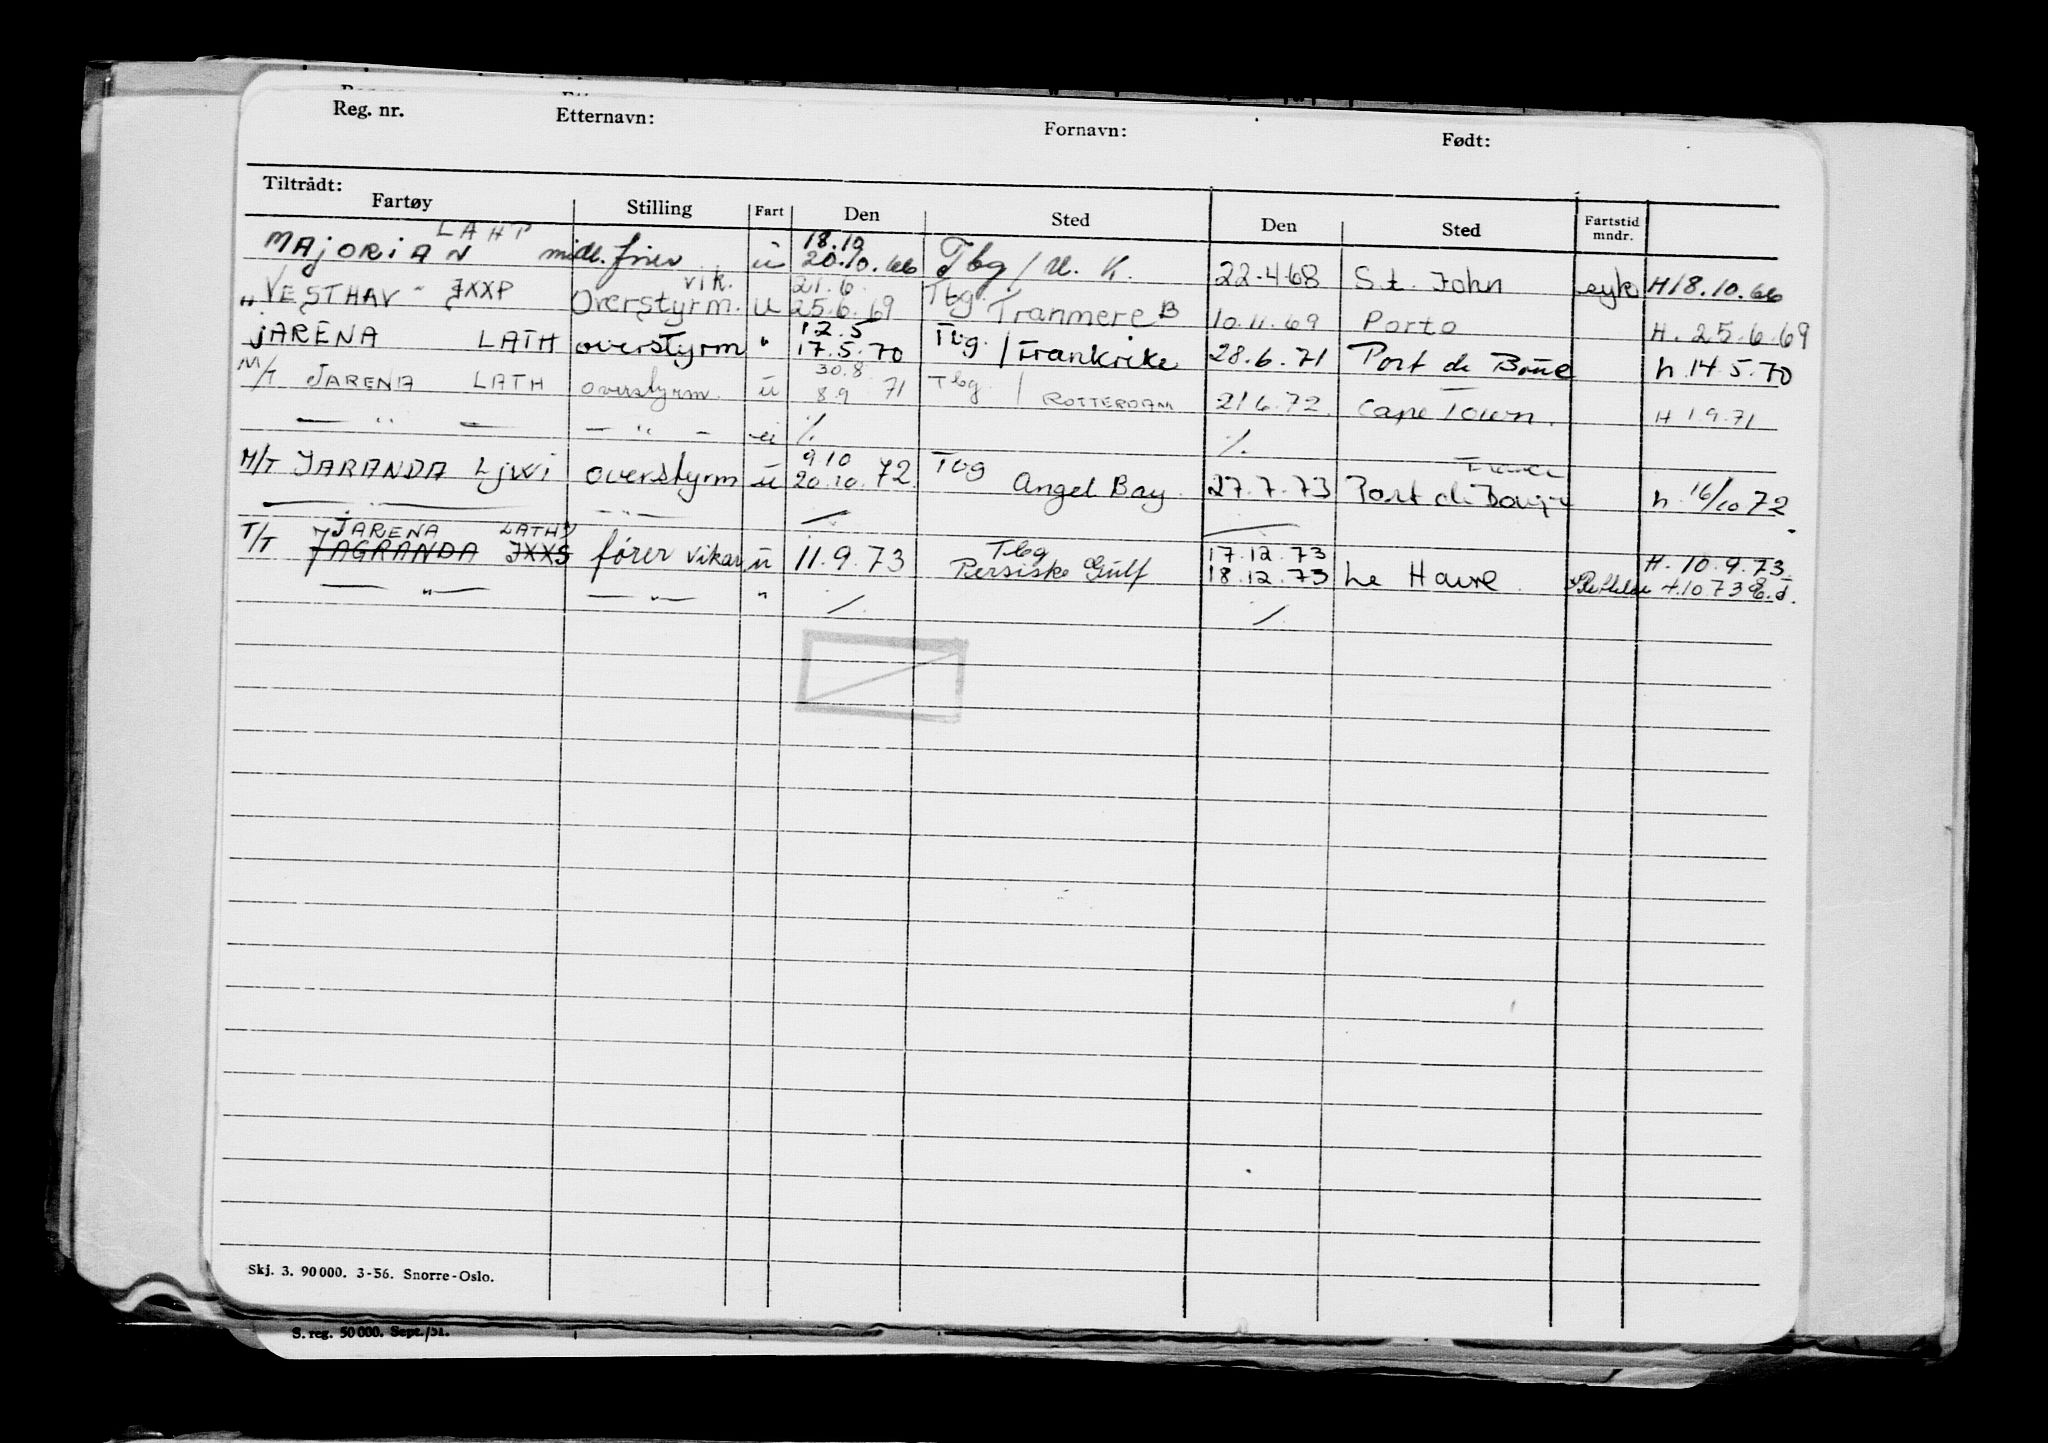 Reg. nr. Etternavn: Fornavn: Født:
Tiltrådt:
Fartøy Stilling Fart Den Sted Den Sted Fartstid mndr.
LAHP 18.10
MAJORIAN midl. fører u 20.10.66 Tbg / U. K. 22.4.68 St. John syk H 18.10.66
vik. 21.6.
VESTHAV JXXP Overstyrm. u 25.6.69 Tbg. Tranmere B 10.11.69 Porto H. 25.6.69
12.5
JARENA LATH overstyrm " 17.5.70 Tbg. / Frankrike 28.6.71 Port de Boue h. 14.5.70
30.8
M/T JARENA LATH overstyrm. u 8.9 71 Tbg / ROTTERDAM 21.6.72. Cape Town. H 1.9.71
— " — — " — u ·/. ·/.
9.10
M/T JARANDA LJWI overstyrm u 20.10.72. Tbg Angel Bay. 27.7.73 Port de h. 16/10 72.
JARENA LATH Tbg 17.12.73
T/T JAGRANDA JXXS fører vikar u 11.9.73 Persiske Gulf 18.12.73 Le Havre. H. 10.9.73
— " — — " — " ·/. ·/.
Skj. 3. 90 000. 3-56. Snorre-Oslo.
S. reg. 50 000. Sept./51.